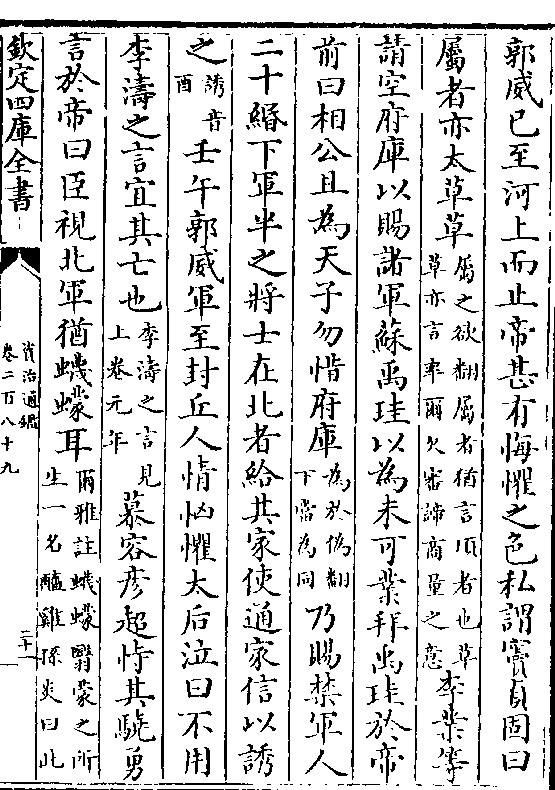 郭威已至河上而止帝甚有悔懼之色私謂竇貞固曰
屬者亦太草草屬之欲翻屬者猶言頃者也草草亦言率爾欠審諦商量之意李業等
請空府庫以賜諸軍蘇禹珪以為未可業拜禹珪於帝
前曰相公且為天子勿惜府庫為於偽翻下當為同乃賜禁軍人
二十緡下軍半之將士在北者給其家使通家信以誘
之誘音酉壬午郭威軍至封丘人情恟懼太后泣曰不用
李濤之言宜其亡也李濤之言見上卷元年慕容彥超恃其驍勇
言於帝曰臣視北軍猶蠛蠓耳爾雅註蠛蠓醫蒙之所生一名醯雞孫炎曰此
欽定四庫全書
資治通鑑
卷二百八十九
二十一